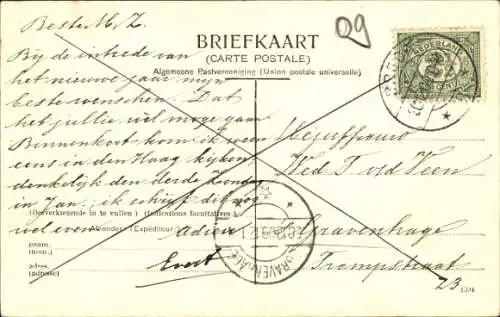 Beste M. Z.
09
BRIEFKAART
(CARTE POSTALE)
Algemeene Postvereeniging (Union postale universelle)
Bij de intrede van
het nieuwe jaar mijn
beste wenschen. Dat
het jullie wel moge gaan
Binnenkort kom ik weer
eens in den Haag kijken
denkelijk den derde Zondag
in Jan; ik schrijf dit nog
wel even. Adieu
Evert
(Denverkiezende in te vullen) (Indications facultatives)
Afzender (Expéditeur)
naam:
(nom:)
adres:
(adresse)
NEDERLAND
GRAVENHAGE
Mejuffrouw
Wed T v d Veen
Gravenhage
Trompstraat
23